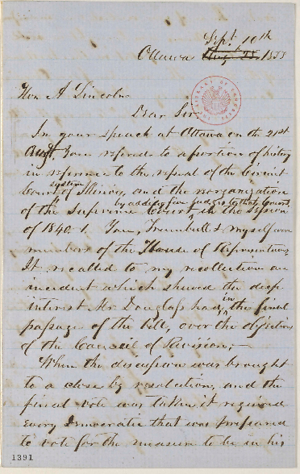 Sept 10th
Ottawa Augt 25 1858
Hon A Lincoln
Dear Sir
In your speech at Ottawa on the 21st
Augt you refered to a portion of history
in reference to the repeal of the Circuit
system
Court of Illinois, and the reorganization
by adding five judges to that Court
of the Supreme Court, in the session
of 1840-1. You, Trumbull & myself were
members of the House of Representatives
It recalled to my recollection an
incident which shewed the deep
interest Mr Douglass had in the final
passage of the bill, over the objections
of the Council of Revision,—
When the discussion was brought
to a close by resolution, and the
final vote was taken, it required
every Democrat that was prepared
to vote for the measure to be in his
1391